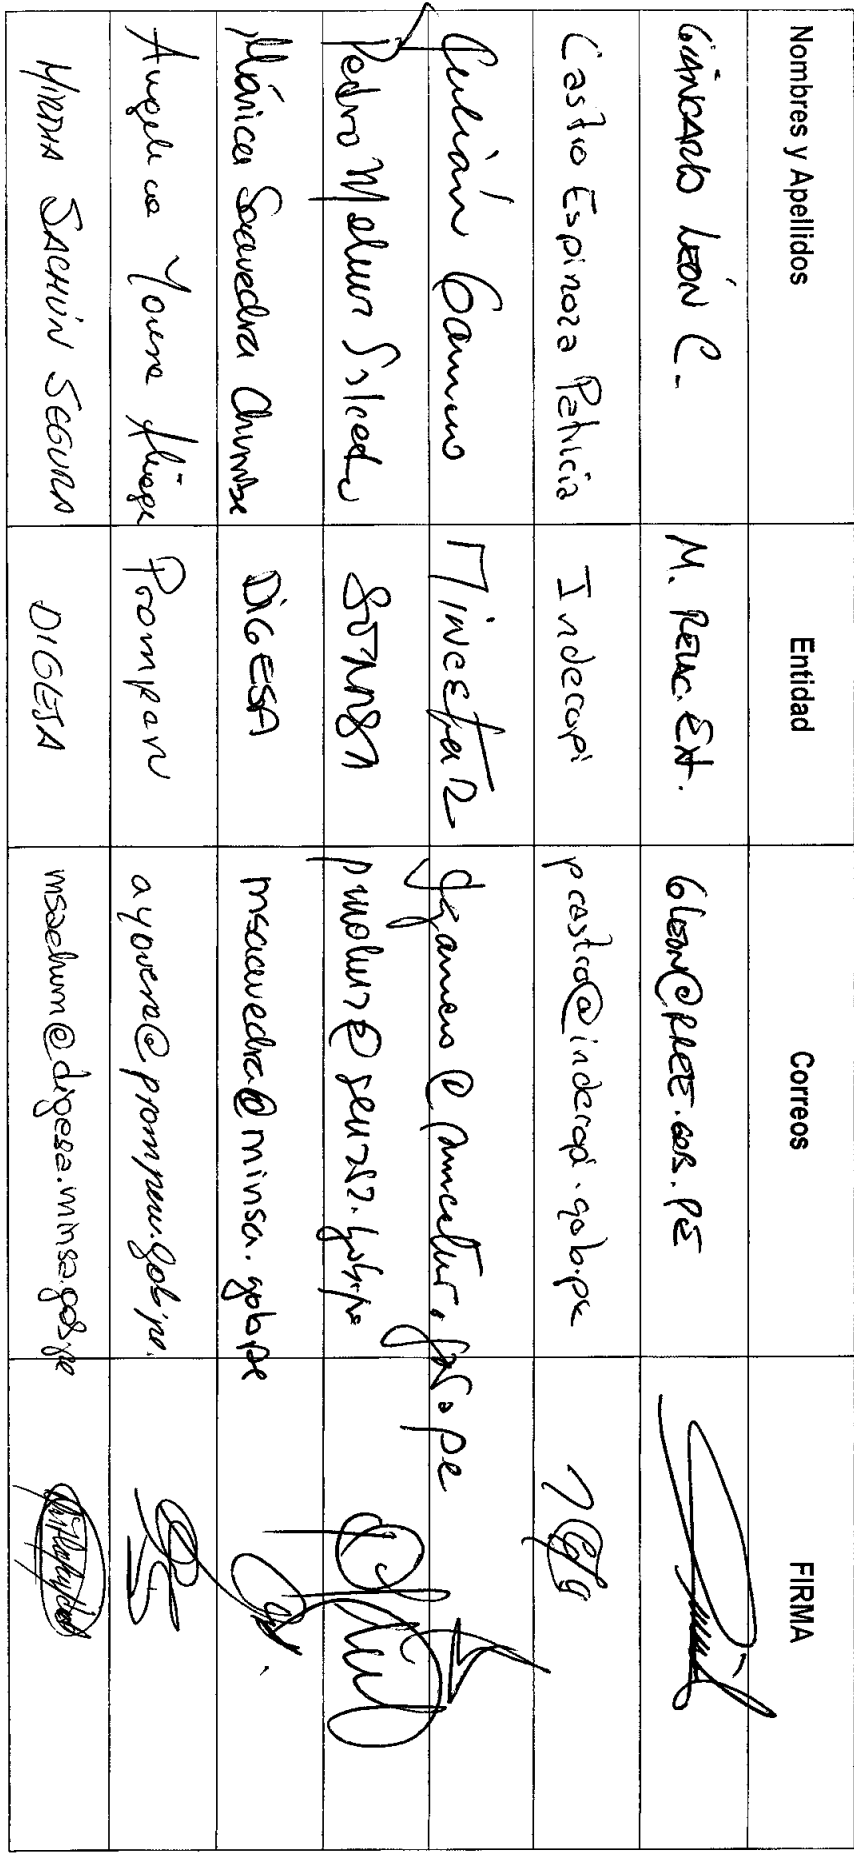 Nombres y Apellidos Entidad Correos FIRMA
GIANCARLO LEÓN C. M. RELAC. EXT. GLEON@RREE.GOB.PE
Castro Espinoza Patricia Indecopi pcastro@indecopi.gob.pe
Julián Gamero Mincetur jgamero@mincetur.gob.pe
Pedro Molina Salcedo
Mónica Saavedra Chumbe DIGESA msaavedra@minsa.gob.pe
Angélica Yovera Promperu ayovera@promperu.gob.pe
MIRTHA SACHÚN SEGURA DIGESA msachun@digesa.minsa.gob.pe